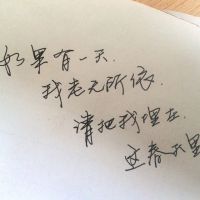 如果有一天.
我老无所依.
请把我埋在.
这春天里